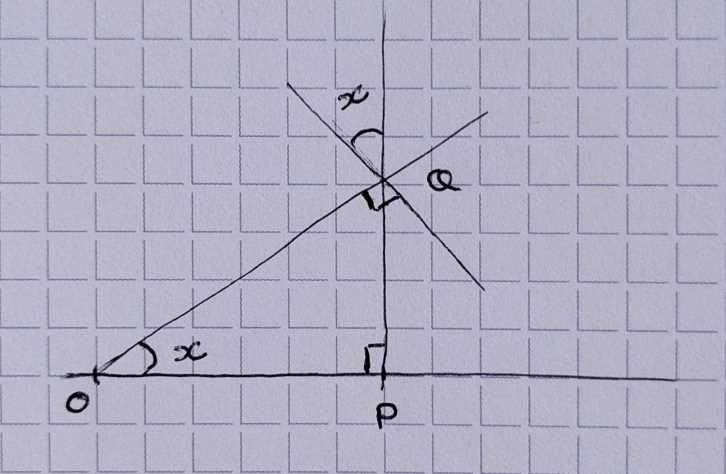 x
Q
x
O
P